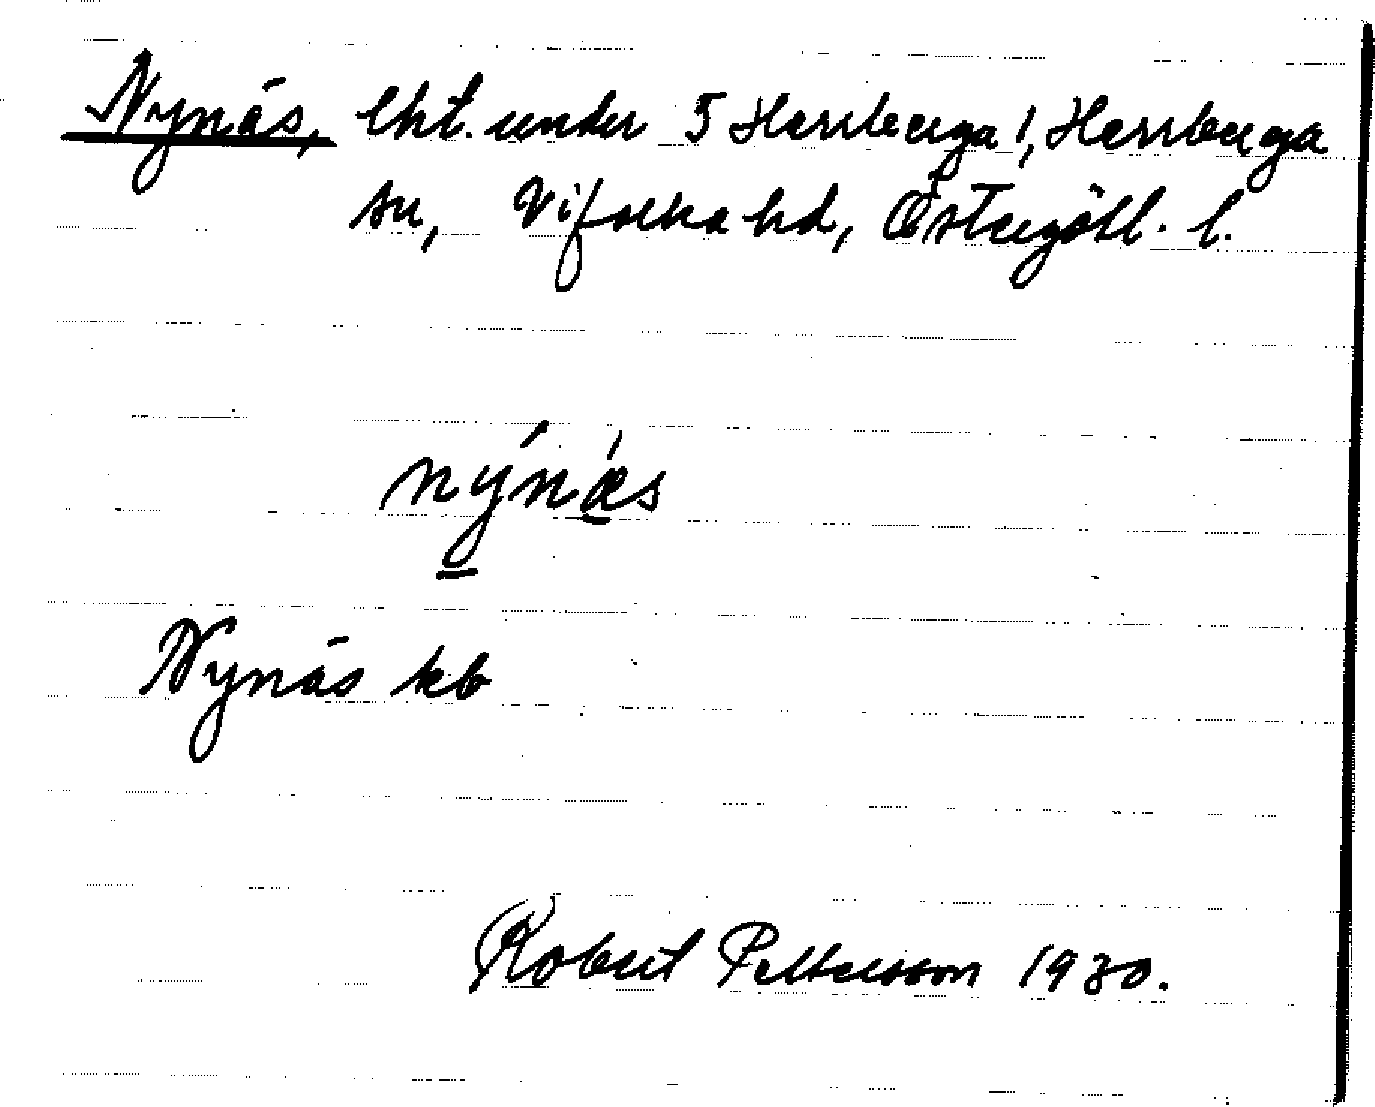 Nynäs, lht. under 5 Herrberga!, Herrberga
sn, Vifolka hd, Östergötl. l.
nýnás
Nynäs kb
Robert Pettersson 1930.